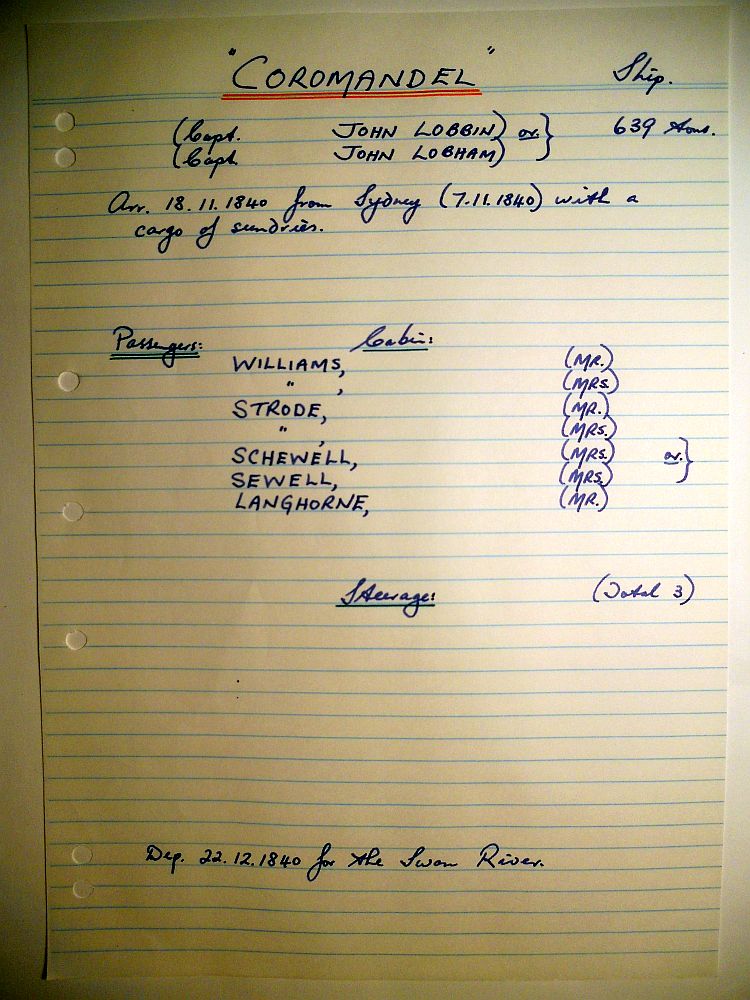 "COROMANDEL" Ship.
(Capt. JOHN LOBBIN) or } 639 tons.
(Capt. JOHN LOBHAM)
Arr. 18.11.1840 from Sydney (7.11.1840) with a
cargo of sundries.
Passengers: Cabin:
WILLIAMS, (MR.)
" , (MRS.)
STRODE, (MR.)
" , (MRS.)
SCHEWELL, (MRS.) or. }
SEWELL, (MRS.)
LANGHORNE, (MR.)
Steerage: (Total 3)
Dep. 22.12.1840 for the Swan River.